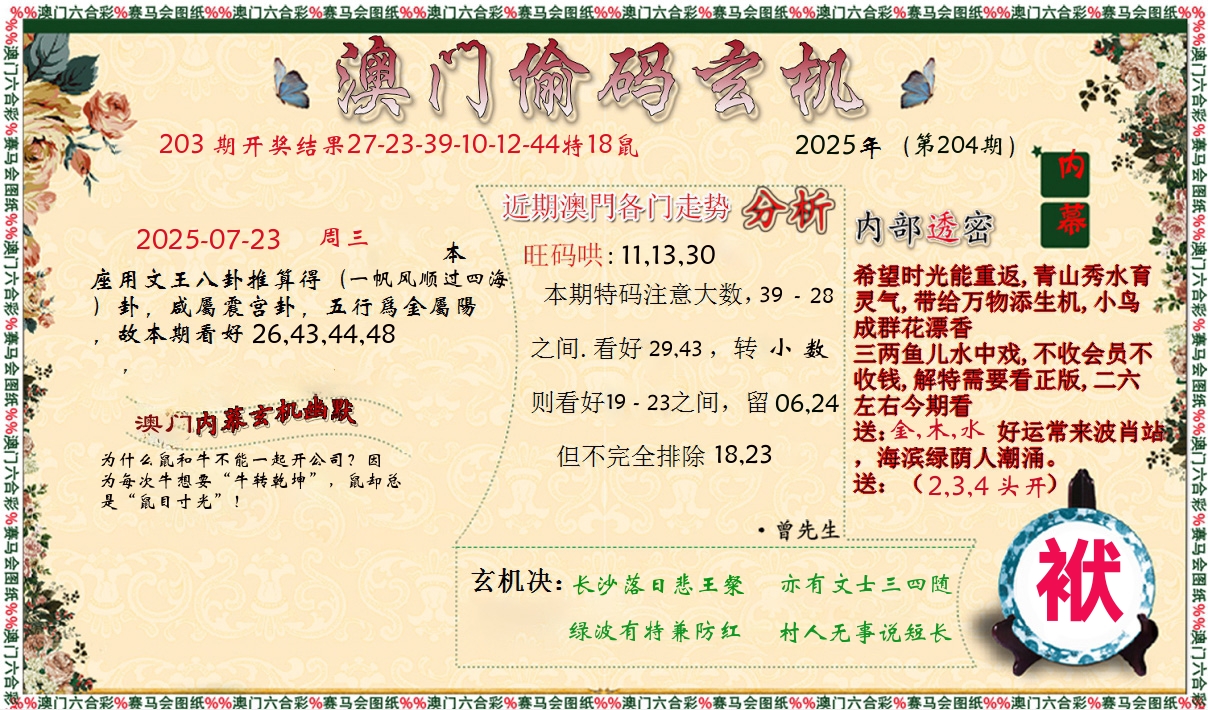 %%澳门六合彩%赛马会图纸%%澳门六合彩%赛马会图纸%%澳门六合彩%赛马会图纸%%澳门六合彩%赛马会图纸%%澳门六合彩%赛马会图纸%%澳门六合彩%赛马会图纸%%
澳门偷码玄机
203 期开奖结果27-23-39-10-12-44特18鼠
2025年（第204期）
内幕
2025-07-23 周三
本
座用文王八卦推算得（一帆风顺过四海
）卦，咸屬震宫卦，五行爲金屬陽
，故本期看好 26,43,44,48
，
澳门内幕玄机幽默
为什么鼠和牛不能一起开公司？因
为每次牛想要“牛转乾坤”，鼠却总
是“鼠目寸光”！
近期澳門各门走势 分析
旺码哄: 11,13,30
本期特码注意大数，39 - 28
之间. 看好 29,43 ，转 小 数
则看好19 - 23之间，留 06,24
但不完全排除 18,23
·曾先生
内部透密
希望时光能重返, 青山秀水育
灵气, 带给万物添生机, 小鸟
成群花漂香
三两鱼儿水中戏, 不收会员不
收钱, 解特需要看正版, 二六
左右今期看
送: 金, 木, 水 好运常来波肖站
，海滨绿荫人潮涌。
送: （2,3,4 头开）
玄机决: 长沙落日悲王粲 亦有文士三四随
绿波有特兼防红 村人无事说短长
袱
%%澳门六合彩%赛马会图纸%%澳门六合彩%赛马会图纸%%澳门六合彩%赛马会图纸%%澳门六合彩%赛马会图纸%%澳门六合彩%赛马会图纸%%澳门六合彩%赛马会图纸%%